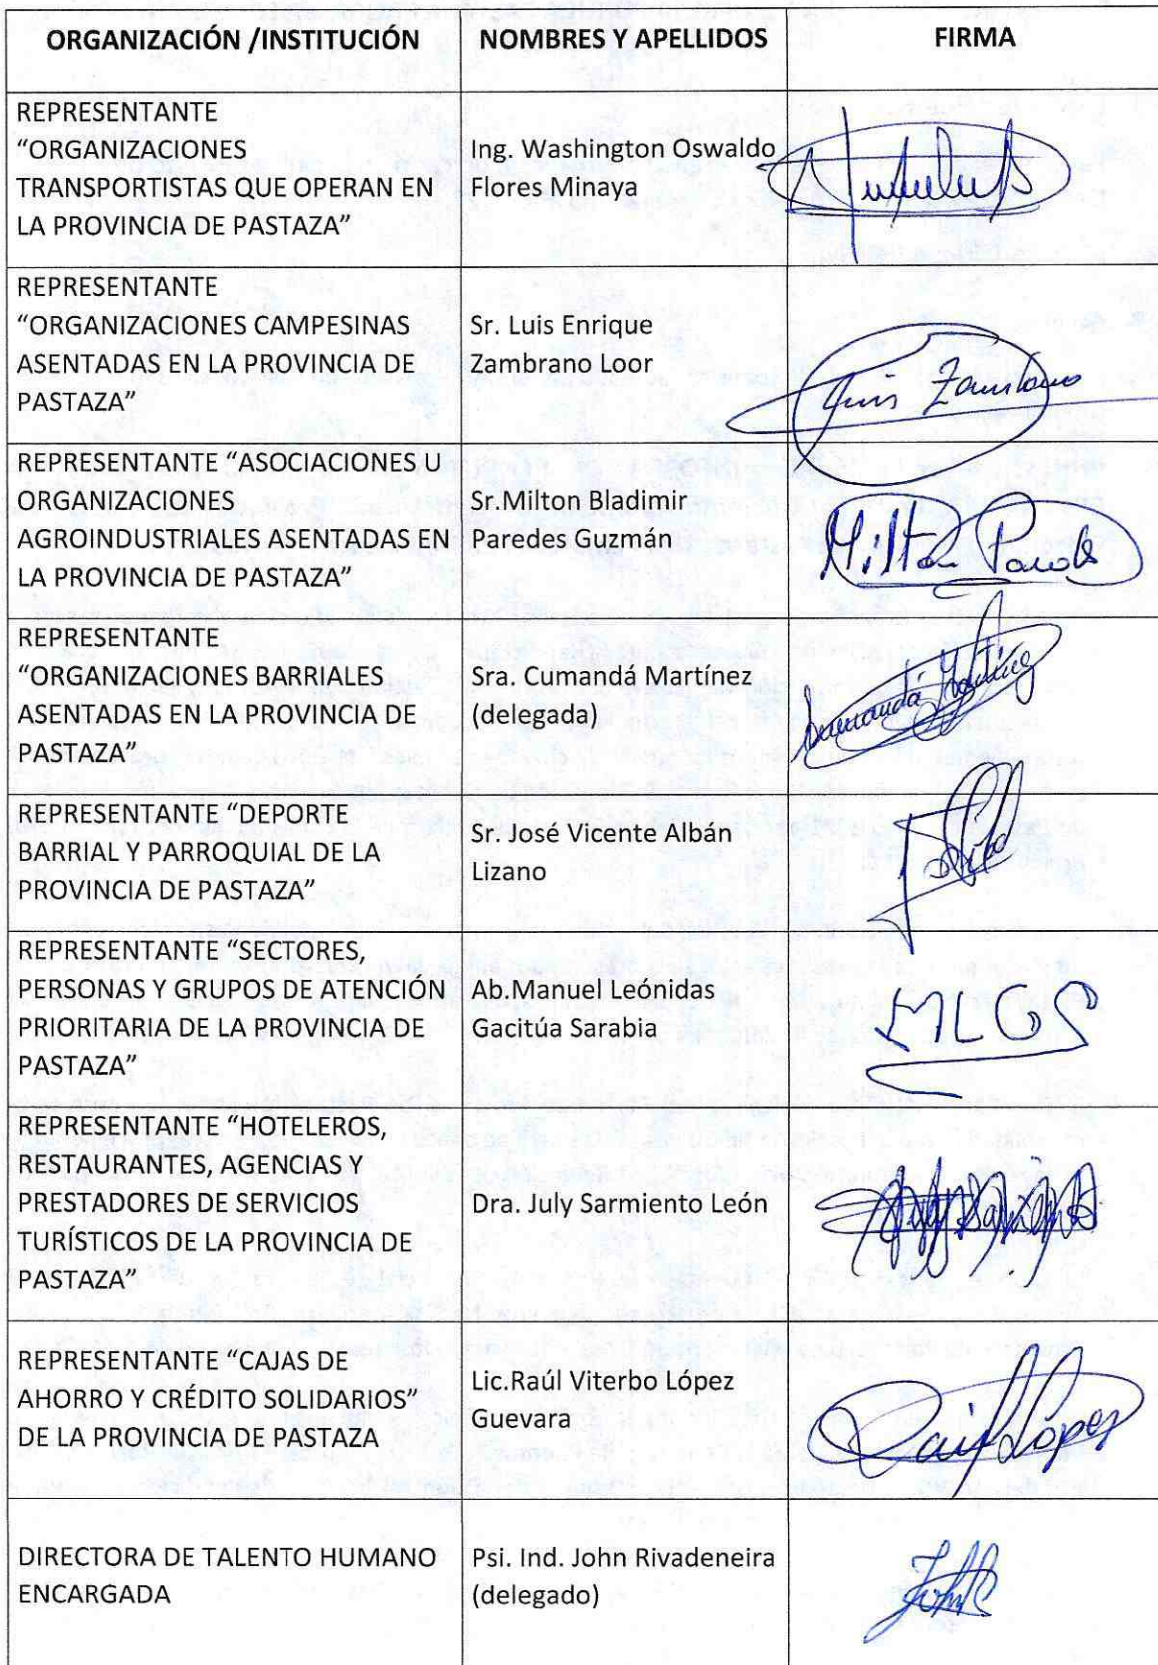 ORGANIZACIÓN /INSTITUCIÓN NOMBRES Y APELLIDOS FIRMA
REPRESENTANTE
“ORGANIZACIONES
TRANSPORTISTAS QUE OPERAN EN
LA PROVINCIA DE PASTAZA”
Ing. Washington Oswaldo
Flores Minaya
REPRESENTANTE
“ORGANIZACIONES CAMPESINAS
ASENTADAS EN LA PROVINCIA DE
PASTAZA”
Sr. Luis Enrique
Zambrano Loor
Luis Zambrano
REPRESENTANTE “ASOCIACIONES U
ORGANIZACIONES
AGROINDUSTRIALES ASENTADAS EN
LA PROVINCIA DE PASTAZA”
Sr.Milton Bladimir
Paredes Guzmán
Milton Paredes
REPRESENTANTE
“ORGANIZACIONES BARRIALES
ASENTADAS EN LA PROVINCIA DE
PASTAZA”
Sra. Cumandá Martínez
(delegada)
Cumandá Martínez
REPRESENTANTE “DEPORTE
BARRIAL Y PARROQUIAL DE LA
PROVINCIA DE PASTAZA”
Sr. José Vicente Albán
Lizano
REPRESENTANTE “SECTORES,
PERSONAS Y GRUPOS DE ATENCIÓN
PRIORITARIA DE LA PROVINCIA DE
PASTAZA”
Ab.Manuel Leónidas
Gacitúa Sarabia
MLGS
REPRESENTANTE “HOTELEROS,
RESTAURANTES, AGENCIAS Y
PRESTADORES DE SERVICIOS
TURÍSTICOS DE LA PROVINCIA DE
PASTAZA”
Dra. July Sarmiento León
REPRESENTANTE “CAJAS DE
AHORRO Y CRÉDITO SOLIDARIOS”
DE LA PROVINCIA DE PASTAZA
Lic.Raúl Viterbo López
Guevara
Raúl López
DIRECTORA DE TALENTO HUMANO
ENCARGADA
Psi. Ind. John Rivadeneira
(delegado)